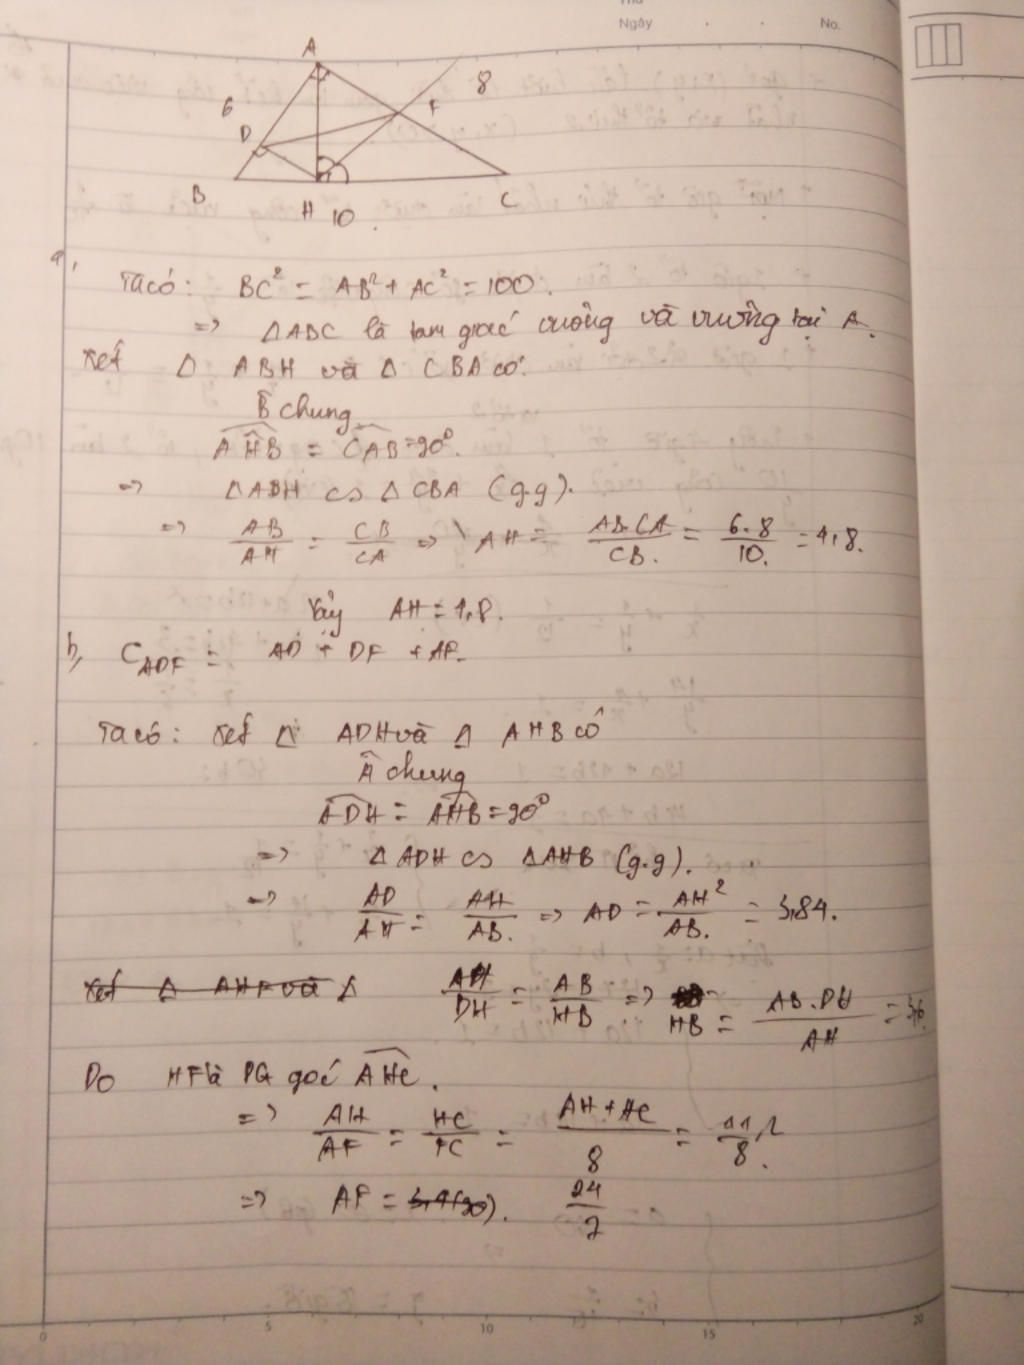 Thứ
Ngày . . No.
A
6
8
D
F
B
H
10
C
a,
Ta có: BC² = AB² + AC² = 100.
=> ΔABC là tam giác vuông và vuông tại A.
Xét Δ ABH và Δ CBA có:
B̂ chung
AHB = CAB = 90°.
=> ΔABH ∽ Δ CBA (g.g).
=> AB/AH = CB/CA => AH = AB.CA/CB. = 6.8/10. = 4,8.
Vậy AH = 4,8.
b, C_ADF = AD + DF + AF.
Ta có: Xét Δ ADH và Δ AHB có
Â chung
ADH = AHB = 90°
=> ΔADH ∽ ΔAHB (g.g).
=> AD/AH = AH/AB. => AD = AH²/AB. = 3,84.
Xét Δ AHF và Δ AH/DH = AB/HB => HB = AB.DH/AH = 3,6
Do HF là PG góc AHC.
=> AH/AF = HC/FC = AH+HC/8 = 11,2/8.
=> AF = 24/7
0 5 10 15 20